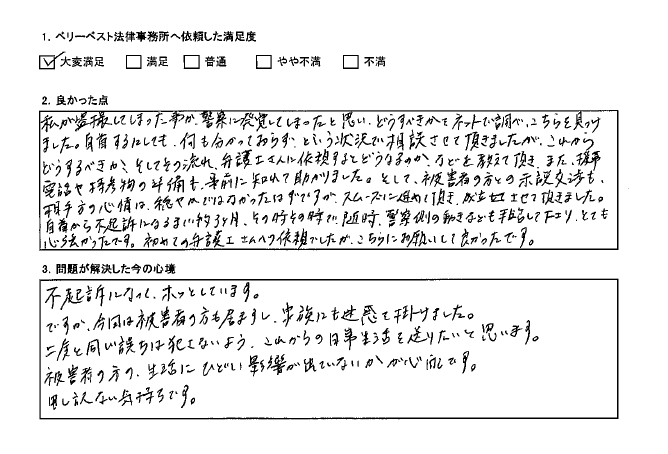 1. ベリーベスト法律事務所へ依頼した満足度
大変満足 満足 普通 やや不満 不満
2. 良かった点
私が盗撮してしまった事が、警察に発覚してしまったと思い、どうすべきかとネットで調べ、こちらを見つけ
ました。自首するにしても、何も分かっておらず、という状況で相談させて頂きましたが、これから
どうするべきか、そしてその流れ、弁護士さんに依頼するとどうなるのか、などを教えて頂き、また、携帯
電話や持参物の準備も、事前に知れて助かりました。そして、被害者の方との示談交渉も、
相手方の心情は、穏やかではなかったはずですが、スムーズに進めて頂き、成立させて頂きました。
自首から不起訴になるまで約3ヶ月、その時その時で、随時、警察側の動きなども手紙して下さり、とても
心強かったです。初めての弁護士さんへの依頼でしたが、こちらにお願いして良かったです。
3. 問題が解決した今の心境
不起訴になって、ホッとしています。
ですが、今回は被害者の方も居ますし、家族にも迷惑を掛けました。
二度と同じ誤ちは犯さないよう、これからの日常生活を送りたいと思います。
被害者の方の、生活にひどい影響が出ていないかが心配です。
申し訳ない気持ちです。